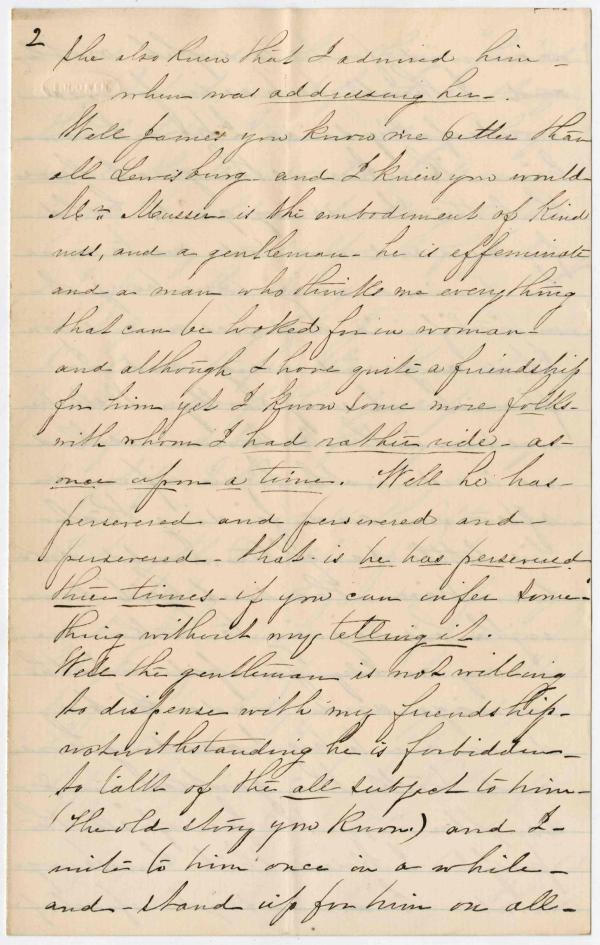 2
She also knew that I admired him -
when was addressing her - .
Well James you know me better than
all Lewisburg - and I knew you would -
Mr. Musser is the embodiment of Kind
ness, and a gentleman - he is effeminate
and a man who thinks me everything
that can be looked for in woman -
and although I have quite a friendship
for him yet I know some more folks -
with whom I had rather ride - as -
once upon a time. Well he has -
persevered and persevered and -
persevered - that is he has persevered
three times - if you can infer some-
thing without my telling it.
Well the gentleman is not willing
to dispense with my friendship -
notwithstanding he is forbidden -
to talk of the all subject to him -
(The old story you know.) and I -
write to him once in a while -
and - stand up for him on all -